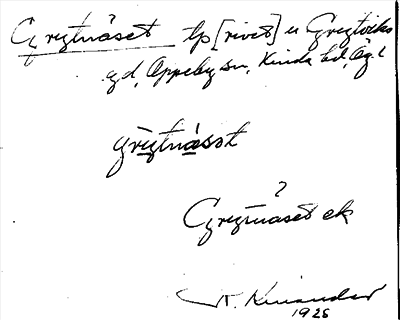 Grytnäset tp[rivet] u Grytviks
gd, Oppeby sn, Kinda hd, Ög. l
grytnäsət
?
Grytnäset ek
Kinander
1928